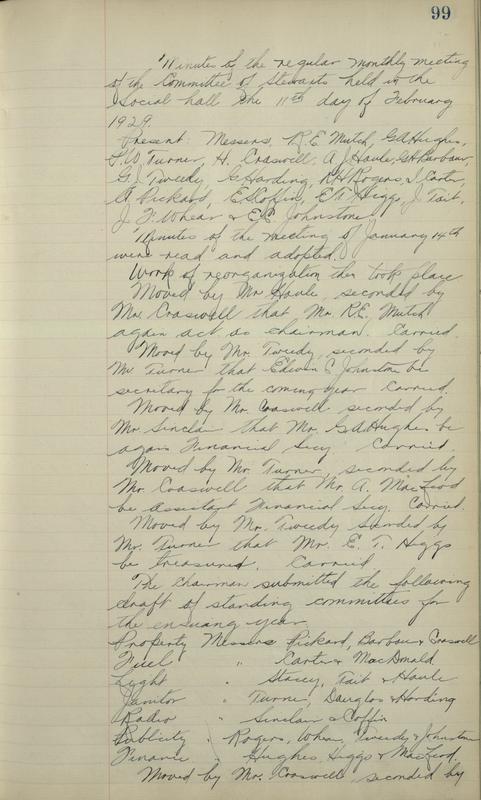 99
Minutes of the regular monthly meeting
of the Committee of Stewarts held in the
Social hall the 11th day of February
1929.
Present: Messers. R.E. Mutch, G.A. Hughes,
T.W. Turner, H. Craswell, A.J. Haule, G.H. Barbour,
G.J. Tweedy, G. Harding, R.H. Rogers, I. Carter,
A. Pickard, E. Coffin, E.T. Higgs, J. Tait,
J.F. Whear & E.C. Johnstone
Minutes of the meeting of January 14th
were read and adopted.
Work of reorganization then took place
Moved by Mr. Haule, seconded by
Mr. Craswell that Mr. R.E. Mutch
again act as chairman. Carried.
Moved by Mr. Tweedy, seconded by
Mr. Turner that Edwin C. Johnstone be
secretary for the coming year Carried.
Moved by Mr. Craswell seconded by
Mr. Sinclair that Mr. G.A. Hughes be
again Financial Secy. Carried.
Moved by Mr. Turner, seconded by
Mr. Craswell that Mr. A. MacLeod
be assistant Financial Secy. Carried.
Moved by Mr. Tweedy
Mr. Turner that Mr. E.T. Higgs
be treasured. Carried
The chairman submitted the following
draft of standing committees for
the ensuing year,
Property Messers Pickard, Barbour & Craswell
Fuel " Carter & MacDonald
Light " Stacey, Tait & Haule
Janitor " Turner, Douglas & Harding
Radio " Sinclair & Coffin
Publicity " Rogers, Whear, Tweedy & Johnstone
Finance " Hughes, Higgs & MacLeod.
Moved by Mr. Craswell, seconded by